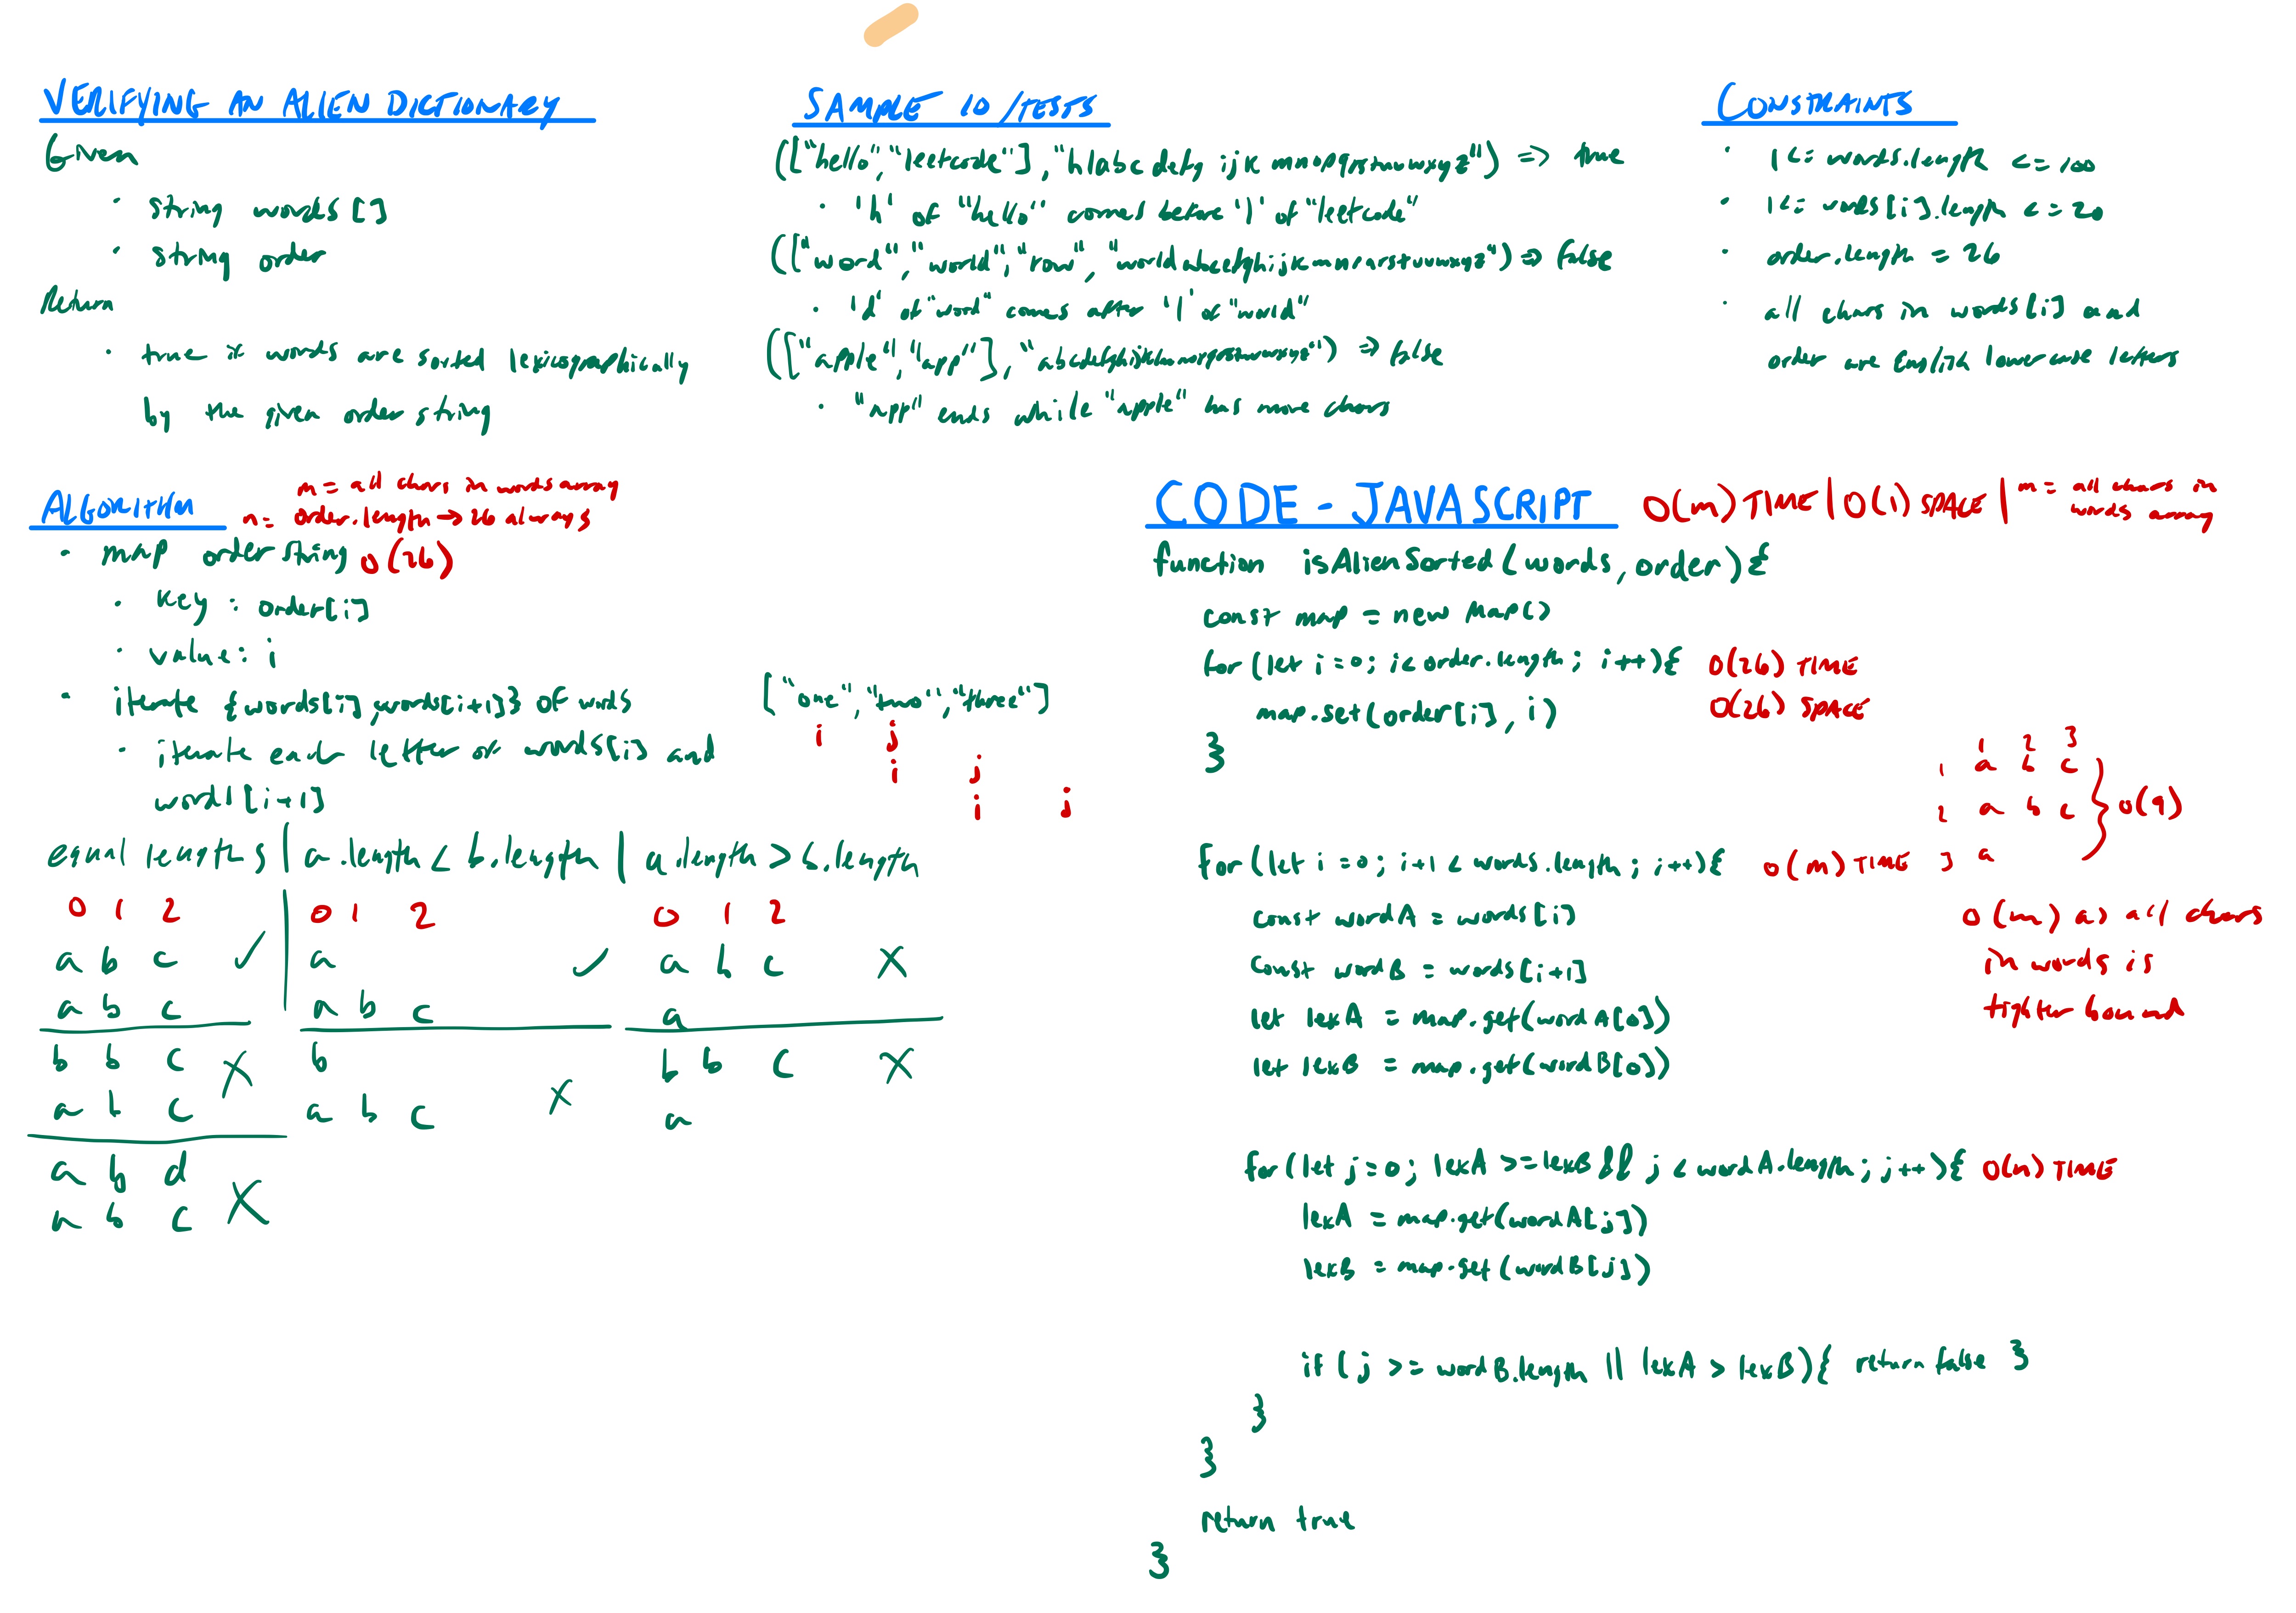 VERIFYING AN ALIEN DICTIONARY
Given
· string words[]
· string order
Return
· true if words are sorted lexicographically
by the given order string
SAMPLE IO/TESTS
(["hello","leetcode"],"hlabcdefgijkmnopqrstuvwxyz") => true
· 'h' of "hello" comes before 'l' of "leetcode"
(["word","world","row", "worldabcefghijkmnpqrstuvwxyz") => false
· 'd' of "word" comes after 'l' of "world"
(["apple","app"],"abcdefghijklmnopqrstuvwxyz") => false
· "app" ends while "apple" has more chars
CONSTRAINTS
· 1 <= words.length <= 100
· 1 <= words[i].length <= 20
· order.length = 26
· all chars in words[i] and
order are English lowercase letters
ALGORITHM
m = all chars in words array
n = order.length → 26 always
· map order string O(26)
· key: order[i]
· value: i
· iterate {words[i],words[i+1]} of words
· iterate each letter of words[i] and
words[i+1]
["one","two","three"]
i j
i j
i j
equal lengths | a.length < b.length | a.length > b.length
0 1 2 0 1 2 0 1 2
a b c ✓ a ✓ a b c X
a b c a b c a
b b c X b X b b c X
a b c a b c a
a b d X
a b c
CODE - JAVASCRIPT O(m) TIME | O(1) SPACE | m = all chars in
words array
function isAlienSorted(words, order){
const map = new Map()
for (let i=0; i<order.length; i++){ O(26) TIME
map.set(order[i], i) O(26) SPACE
}
1 2 3
1 a b c
2 a b c } O(9)
3 a
for (let i=0; i+1 < words.length; i++){ O(m) TIME
const wordA = words[i]
const wordB = words[i+1]
let lexA = map.get(wordA[0])
let lexB = map.get(wordB[0])
O(m) as all chars
in words is
tighter bound
for (let j=0; lexA >= lexB && j < wordA.length; j++){ O(n) TIME
lexA = map.get(wordA[j])
lexB = map.get(wordB[j])
if (j >= wordB.length || lexA > lexB){ return false }
}
}
return true
}